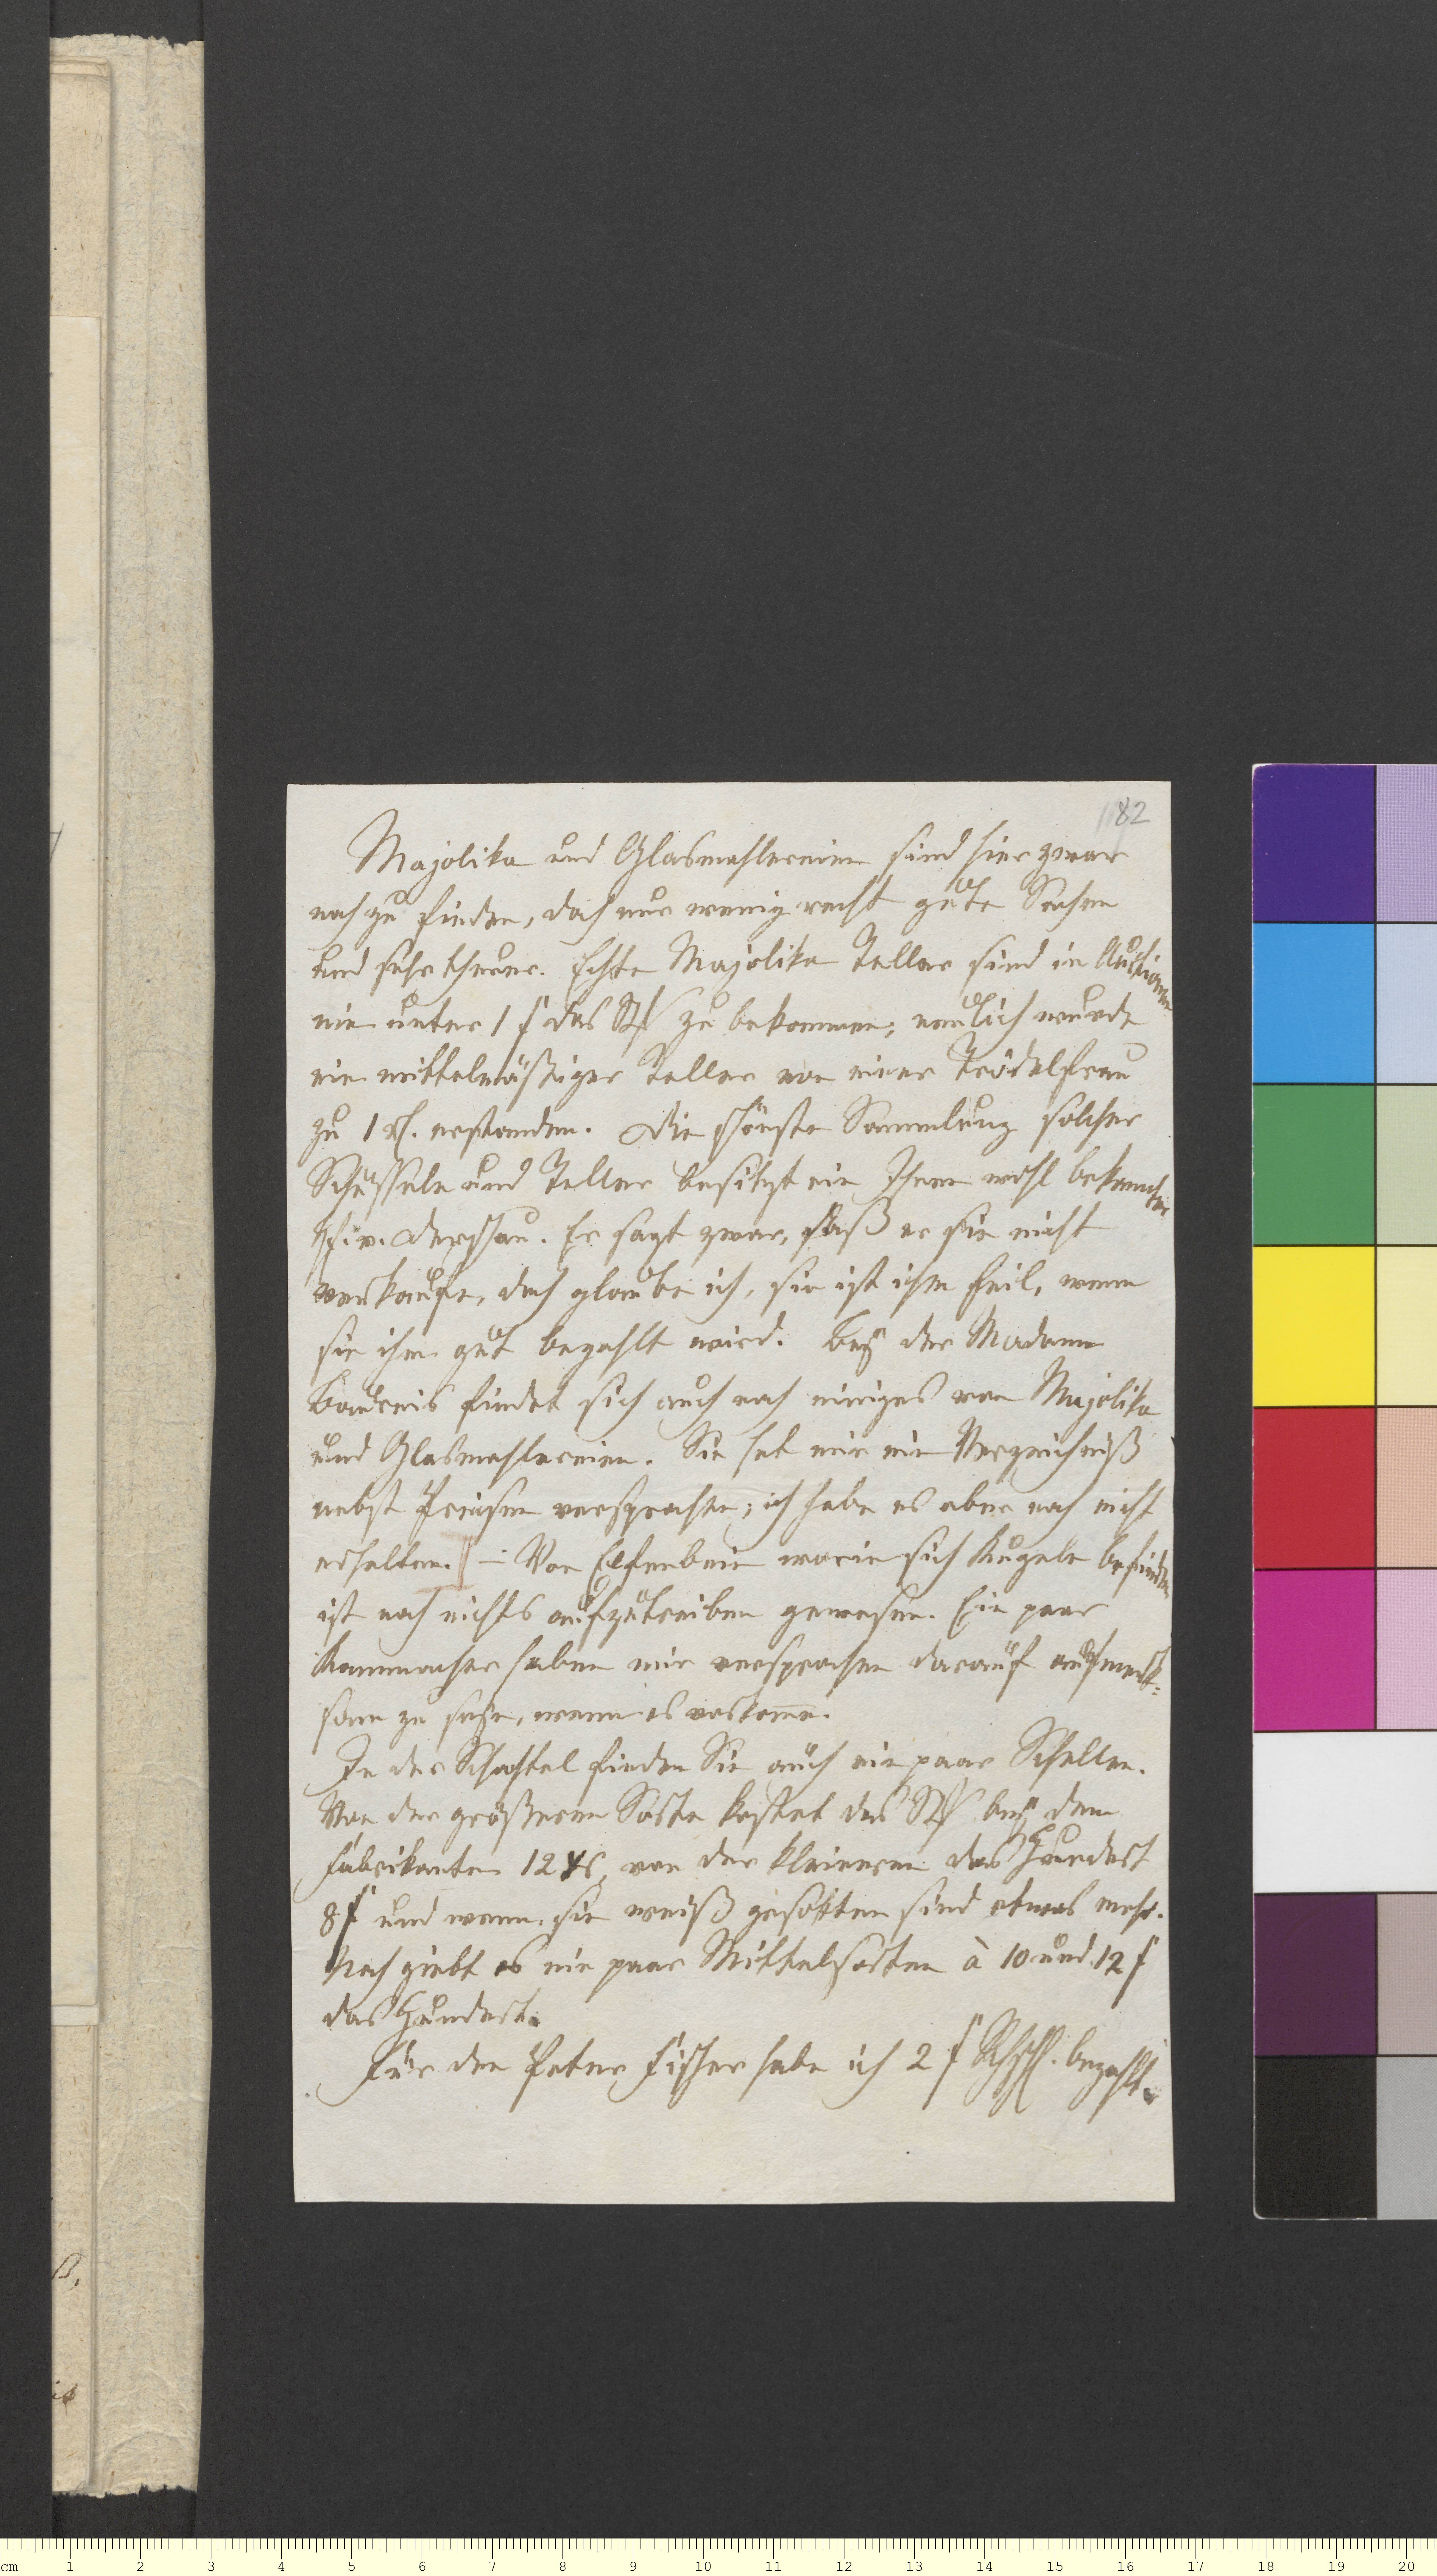 182
Majolika und Glasmahlereien sind hier zwar
noch zu finden, doch nur wenig recht gute Sachen
und sehr theuer. Echte Majolika Teller sind in Auctionen
nie unter 1 f das St zu bekommen; neulich wurde
ein mittelmäßiger Teller von einer Trödelfrau
zu 1 erstanden. Die schönste Sammlung solcher
Schüsseln und Teller besitzt ein Ihnen wohl bekannter
H. v. Derschau. Er sagt zwar, daß er sie nicht
verkaufe, doch glaube ich, sie ist ihm feil, wenn
sie ihm gut bezahlt wird. Bey der Madame
findet sich auch noch einiges von Majolika
und Glasmahlereien. Sie hat mir ein Verzeichniß
nebst Preisen versprochen; ich habe es aber noch nicht
erhalten. – Von Elfenbein worin sich Kugeln befinden
ist noch nichts aufzutreiben gewesen. Ein paar
Kammacher haben mir versprochen darauf aufmerk-
sam zu seyn, wenn es vorkomme.
In der Schachtel finden Sie auch ein paar Schellen.
Von der größeren Sorte kostet das St bey dem
Fabrikanten 12 von der kleineren das Hundert
8 f und wenn sie weiß gesotten sind etwas mehr.
Noch giebt es ein paar Mittelsorten à 10 und 12 f
das Hundert.
Für den Peter Fischer habe ich 2 f bezahlt.